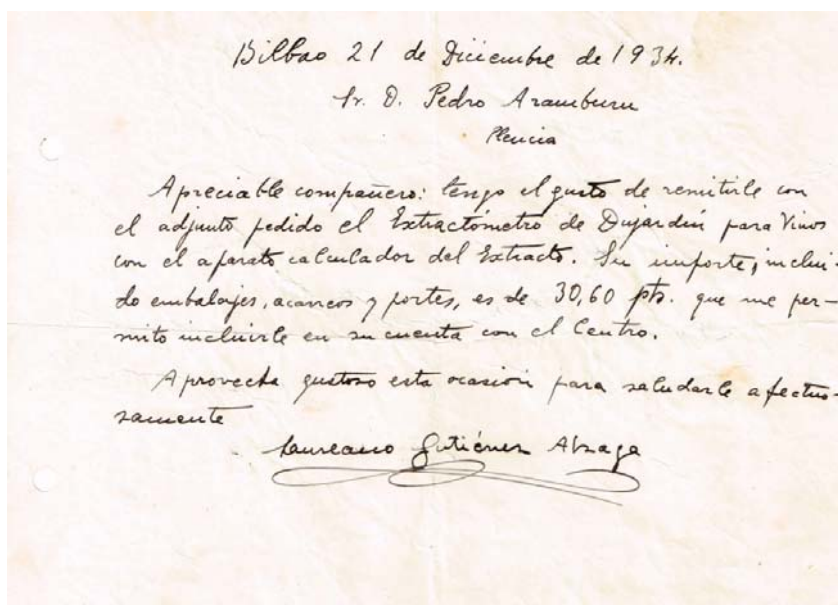 Bilbao 21 de Diciembre de 1934.
Sr. D. Pedro Aramburu
Plencia
Apreciable compañero: tengo el gusto de remitirle con
el adjunto pedido el Extractómetro de Dujardin para Vinos
con el aparato calculador del Extracto. Su importe, inclui-
do embalajes, acarreos y portes, es de 30,60 pts. que me per-
mito incluirle en su cuenta con el Centro.
Aprovecha gustoso esta ocasión para saludarle afectuo-
samente
Laureano Gutiérrez Alzaga